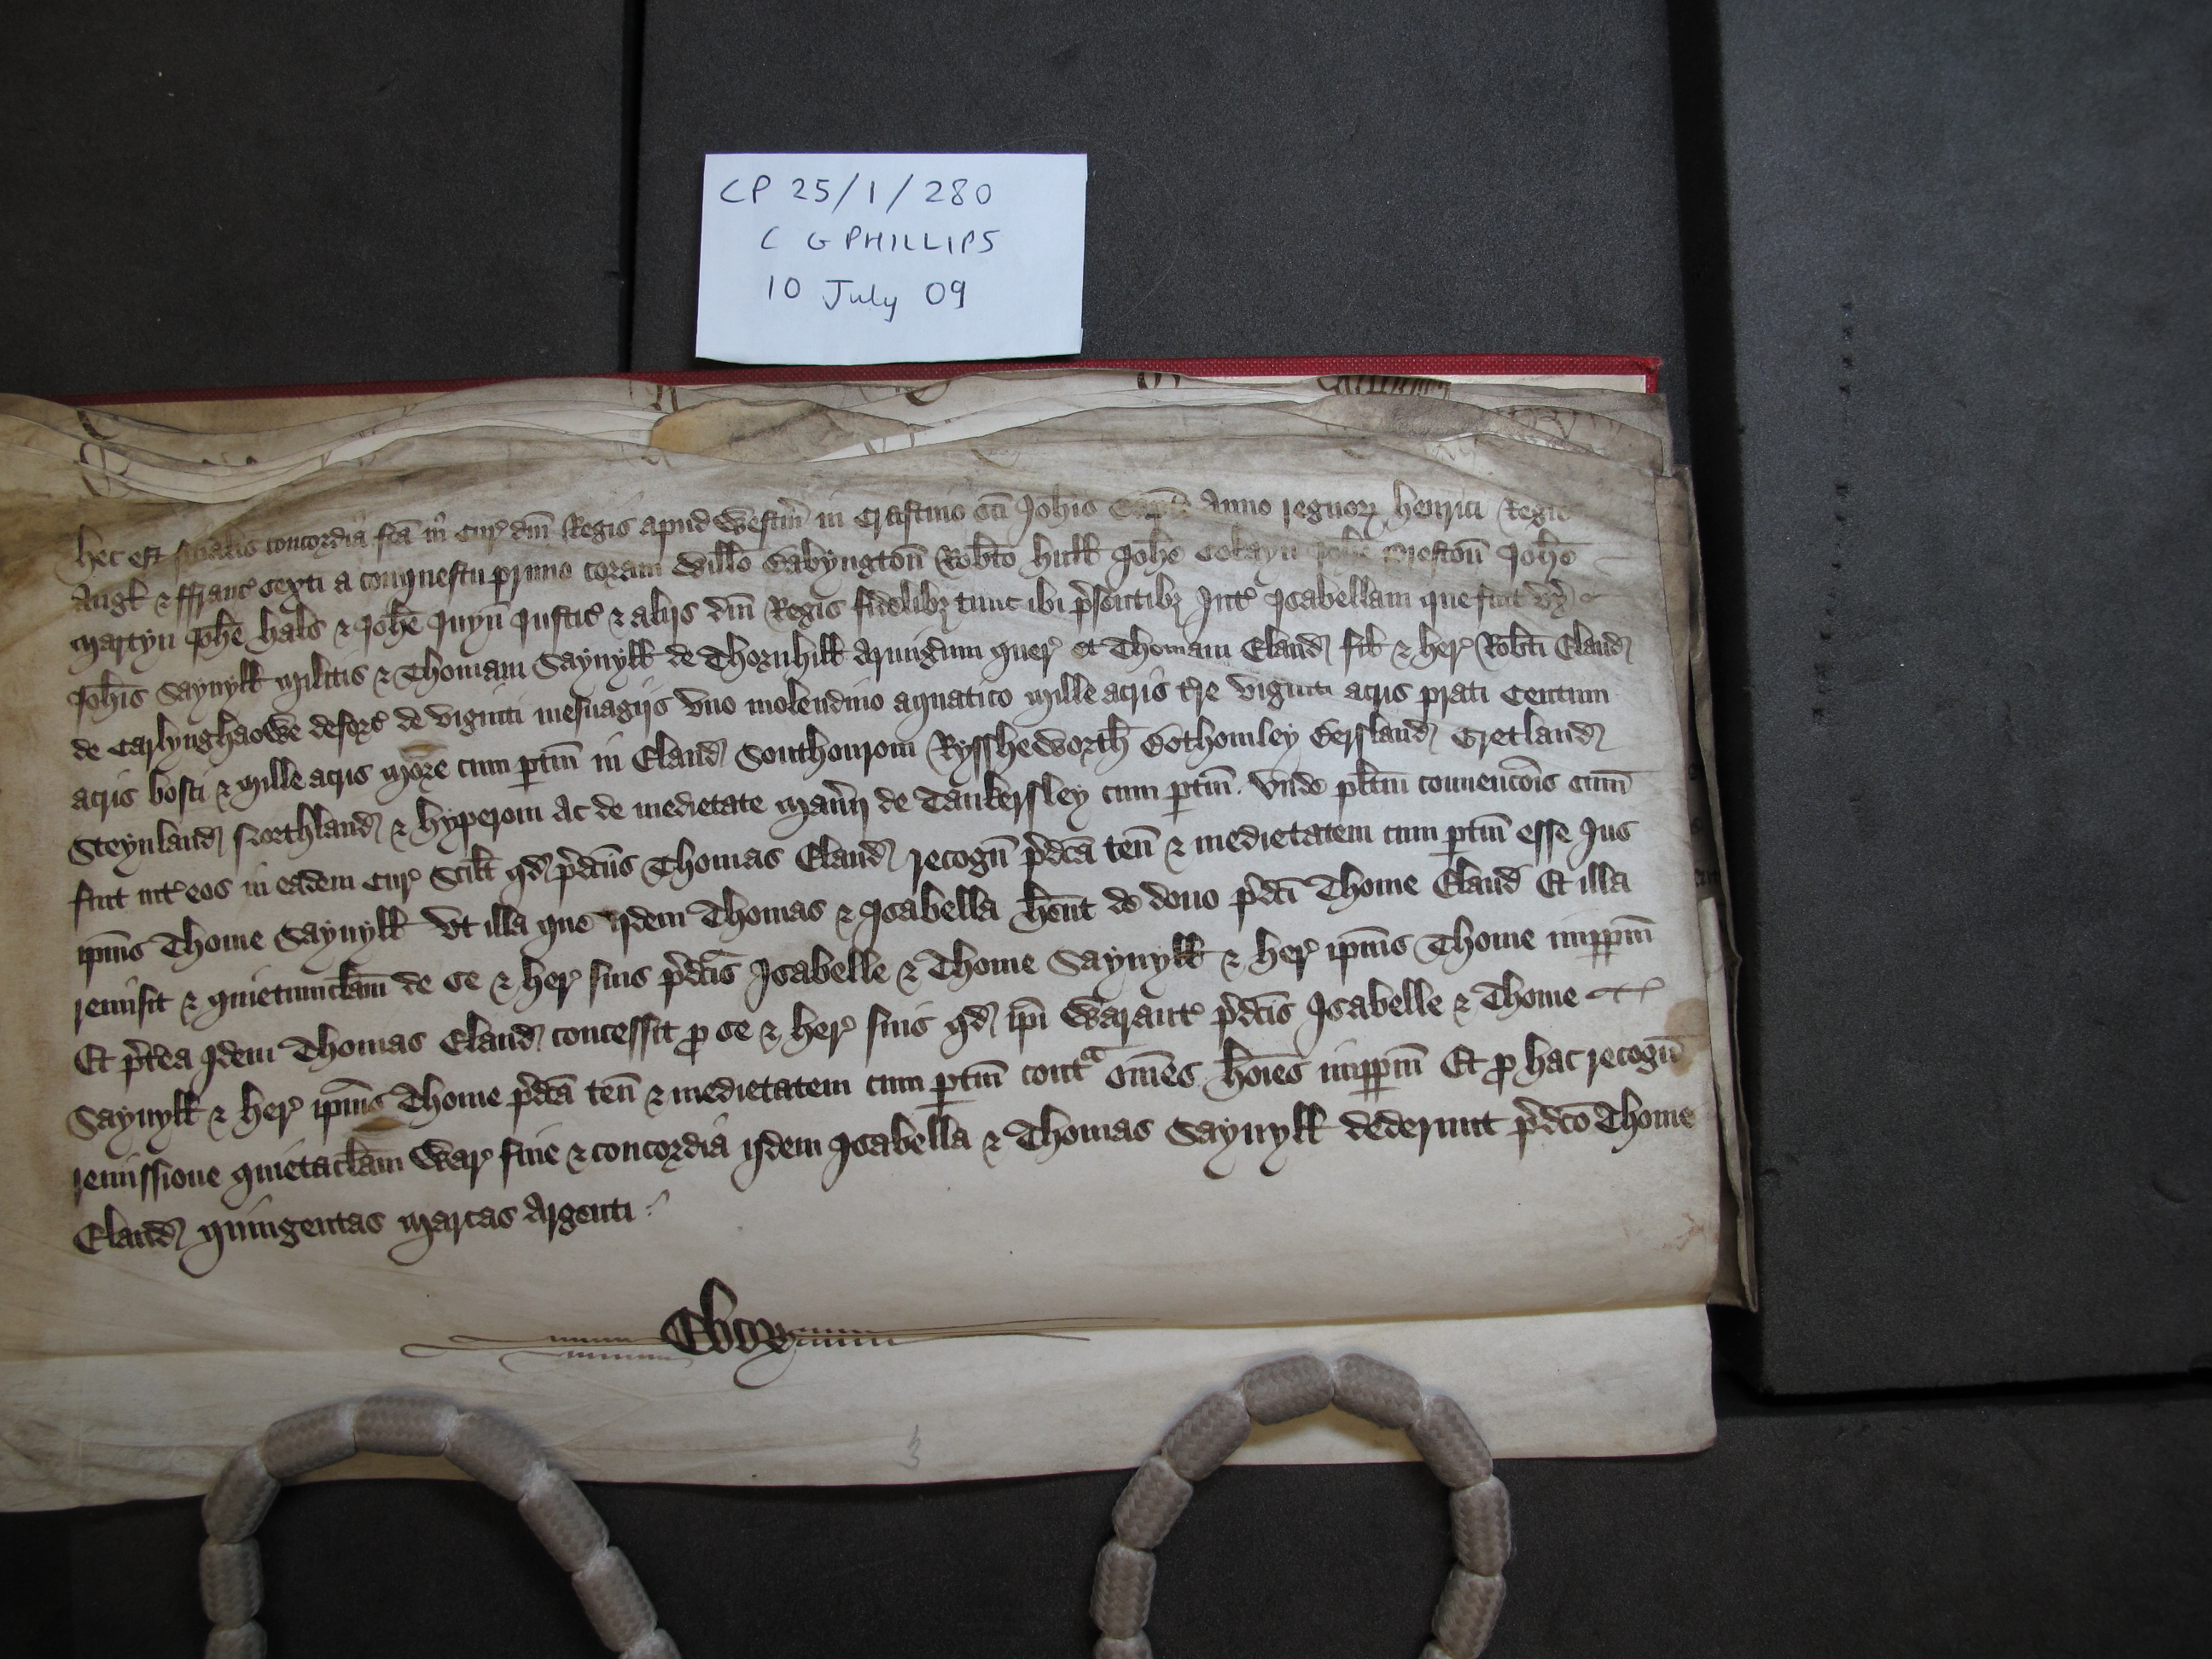 CP 25/1/280
C G PHILLIPS
10 July 09
hec est finalis concordia fcā in Cur' dñi Regis apud Westm̃ in Crastino sc̄i Joh̃is Bapt̃e Anno regnorꝝ henrici Regis
Angł & ffranc' sexti a conquestu primo coram Willo Babyngton̄ Rob̃to hull Joh̃e Cokayn Joh̃e Preston̄ Joh̃e
Martyn Joh̃e hals & Joh̃e Juyn̄ Justic' & alijs dñi Regis fidelibꝫ tunc ibi p̃sentibꝫ Int' Isabellam que fuit vx̃
Joh̃is Sayuyll militis & Thomam Sayuyll de Thornhill Armigerum quer' et Thomam Eland fił & her' Rob̃ti Eland
de Carlynghaowe deforc' de viginti mesuagijs vno molendino aquatico mille acris tr̃e viginti acris prati Centum
acris bosci & Mille acris More cum p̱tin̄ in Eland Southourom Rysshworth Bothomley Bersland Gretland
Steynland Northland & hyperom ac de medietate Man̄ij de Tankersley cum p̱tin̄. vnde pl̃itm conuenc̄ois sum̄
fuit int' eos in eadem Cur' Scilt qd p̃dc̄us Thomas Eland recogn̄ p̃dc̄a ten̄ & medietatem cum p̱tin̄ esse Jus
ip̄ius Thome Sayuyll vt illa que ijdem Thomas & Isabella h̃ent de dono p̃dc̄i Thome Eland Et illa
remisit & quietumclam̄ de se & her' suis p̃dc̄is Isabelle & Thome Sayuyll & her' ip̄ius Thome imp̱p̱m̄
Et p̃t̃ea Idem Thomas Eland concessit ꝓ se & her' suis qd ip̄i Warant' p̃dc̄is Isabelle & Thome
Sayuyll & her' ip̄ius Thome p̃dc̄a ten̄ & medietatem cum p̱tin̄ contᵃ om̄es hoı̃es imp̱p̱m̄ Et ꝓ hac recogn̄
remissione quietaclam̄ War' fine & concordia ijdem Isabella & Thomas Sayuyll dederunt p̃dc̄o Thome
Eland quingentas marcas Argenti
Eborum